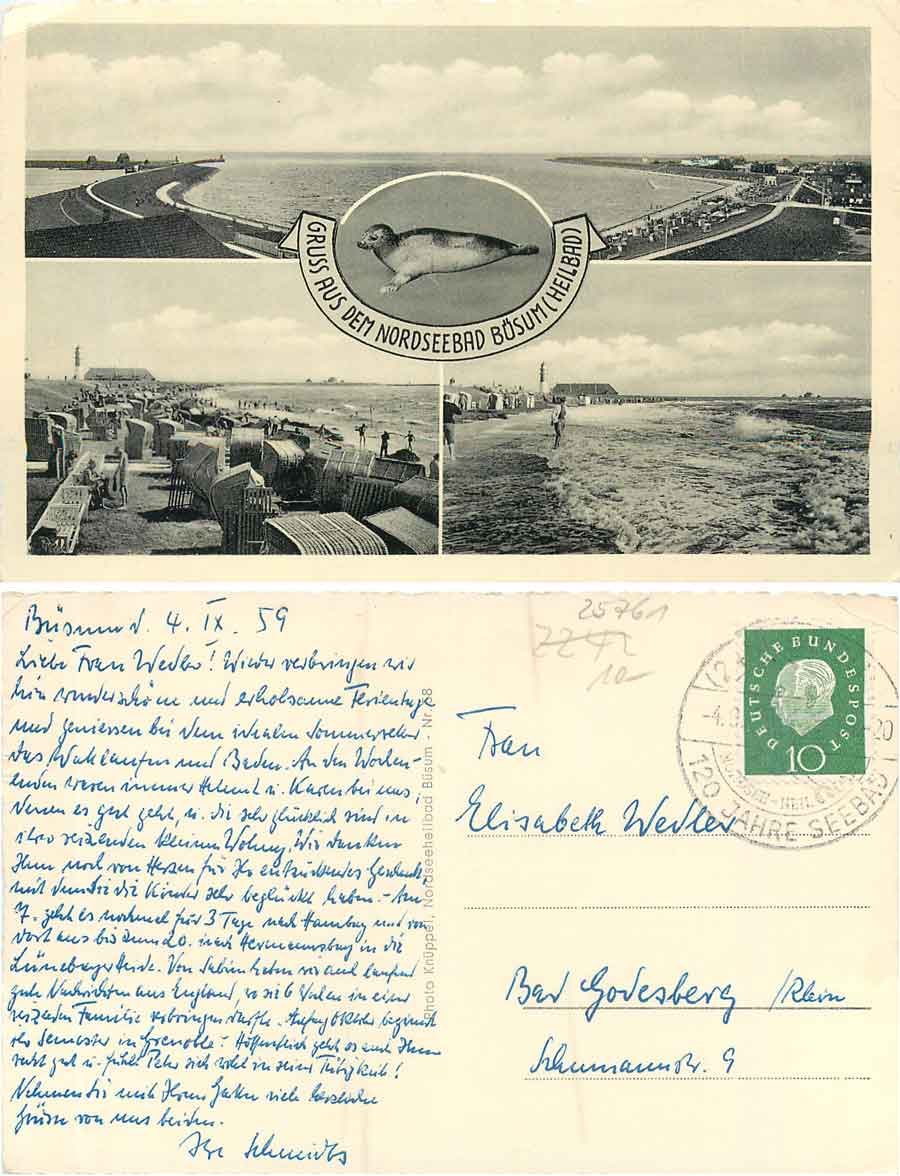 GRUSS AUS DEM NORDSEEBAD BÜSUM (HEILBAD)
Büsum d. 4. IX. 59
Liebe Frau Wedler! Wieder verbringen wir
hier wunderschöne und erholsame Ferientage
und geniessen bei dem idealen Sommerwetter
das Wattlaufen und Baden. An den Wochen-
enden waren immer Helmut u. Karen bei uns,
denen es gut geht, u. die sehr glücklich sind in
ihrer reizenden kleinen Wohnung. Wir danken
Ihnen noch von Herzen für Ihr entzückendes Geschenk,
mit dem Sie die Kinder sehr beglückt haben. - Am
7. geht es nochmal für 3 Tage nach Hamburg und von
dort aus bis zum 20. nach Hermannsburg in die
Lüneburger Heide. Von Sabine haben wir auch laufend
gute Nachrichten aus England, wo sie 6 Wochen in einer
reizenden Familie verbringen durfte. Anfang Oktober beginnt
ihr Semester in Grenoble. Hoffentlich geht es auch Ihnen
recht gut u. fühlt Peter sich wohl in seiner Tätigkeit!
Nehmen Sie mit Ihrem Gatten viele herzliche
Grüsse von uns beiden.
Ihre Schmidts
Photo Knüppel, Nordseeheilbad Büsum - Nr. 68
25761
10-
DEUTSCHE BUNDESPOST
10
120 JAHRE SEEBAD
Frau
Elisabeth Wedler
Bad Godesberg /Rhein
Schumannstr. 9